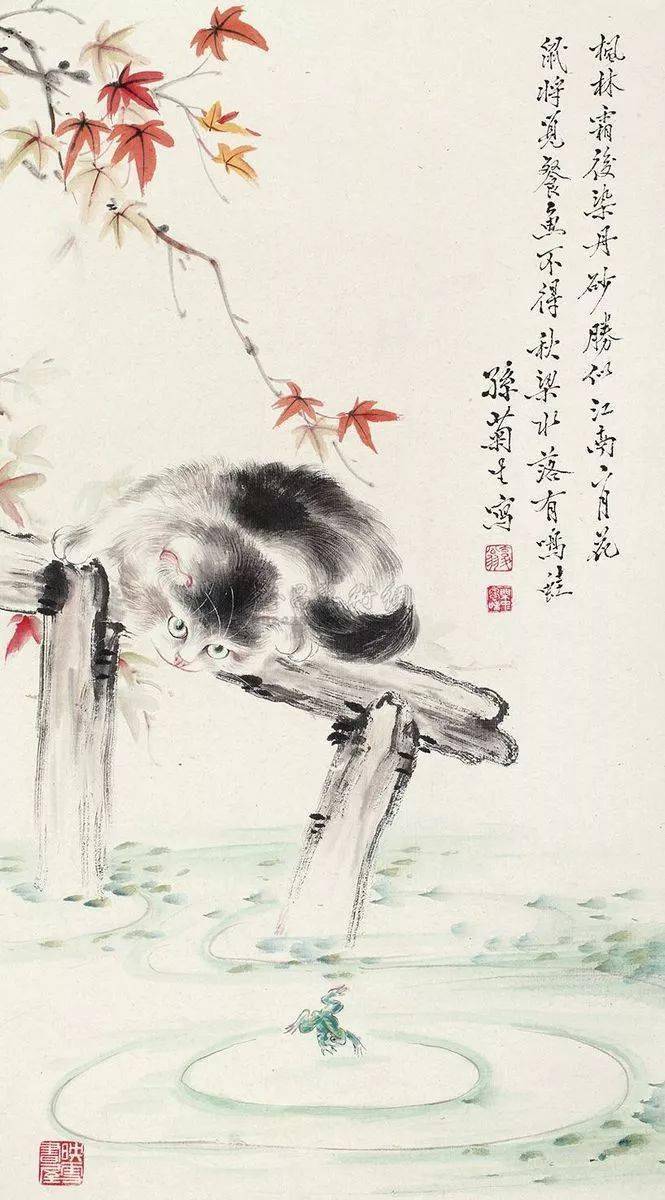 楓林霜後染丹砂勝似江南二月花
將覓餐魚不得秋梁水落有鳴蛙
孫菊生寫
映雪
書屋